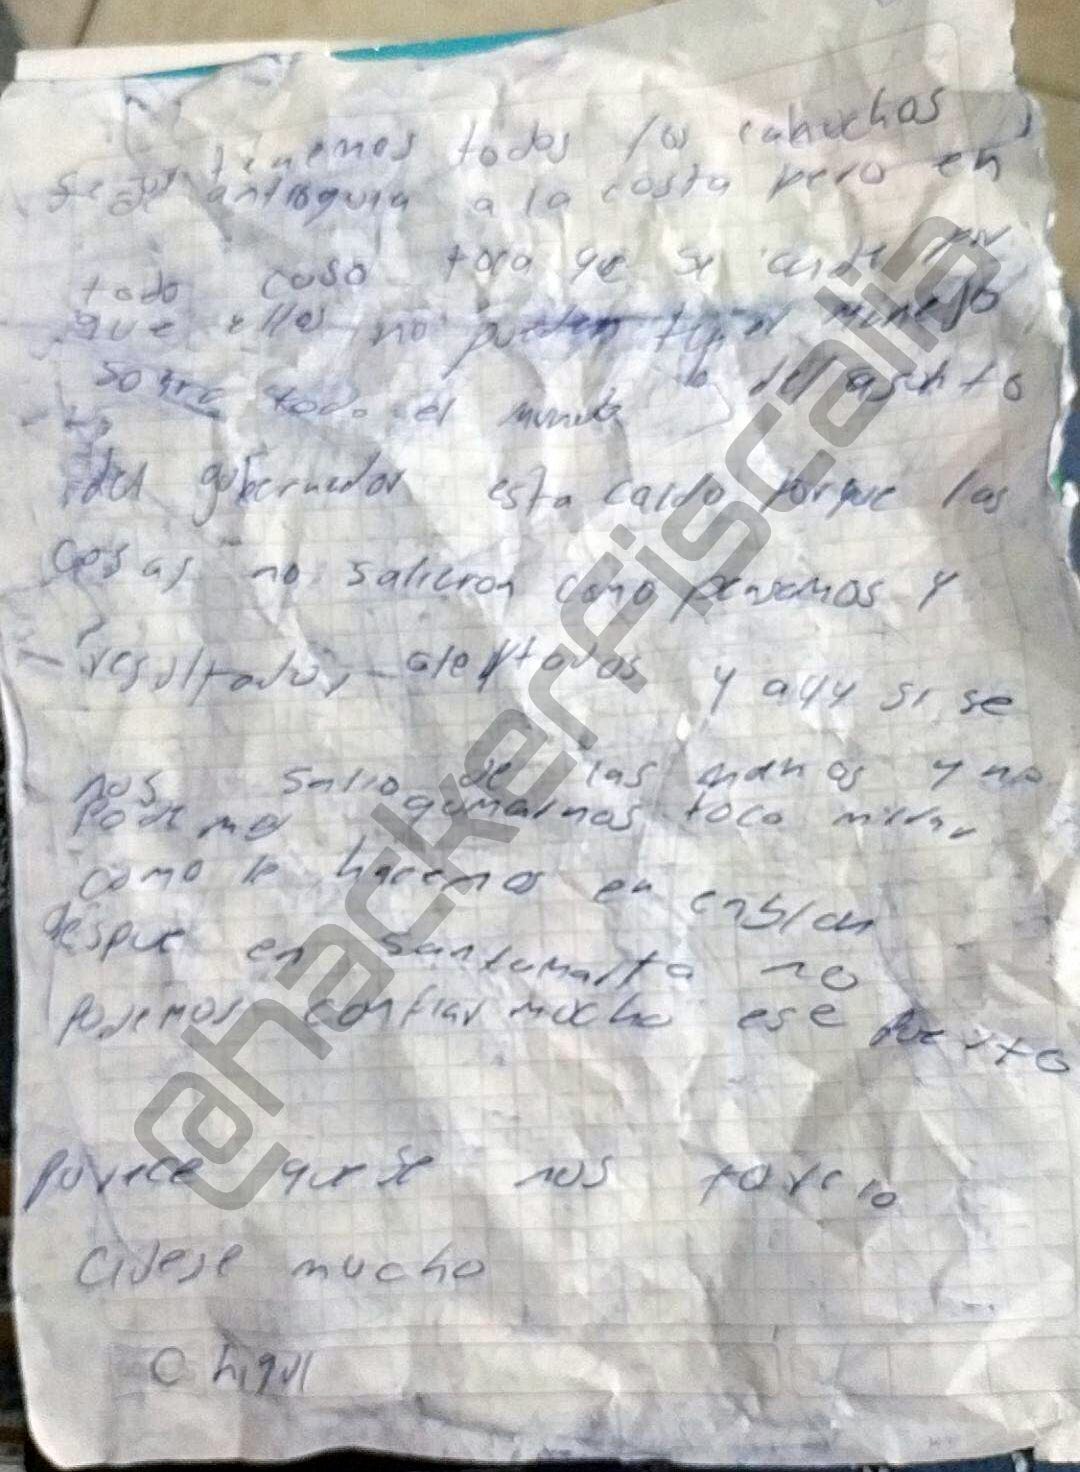 tenemos todos los cabuchos
antioquia a la costa pero en
todo caso toca que se cuide por
que ellos no pueden tener minejo
sobre todo el mundo lo del asunto
del gobernador esta caldo porque las
cosas no salieron como pensamos y
resultados y aqy si se
nos salio de las manos y no
podemos qumarnos toco mirar
como lo hacemos en
despue en santamarta no
podemos confiar mucho ese puerto
parece que se nos torcio
cidese mucho
@hackerfiscalia